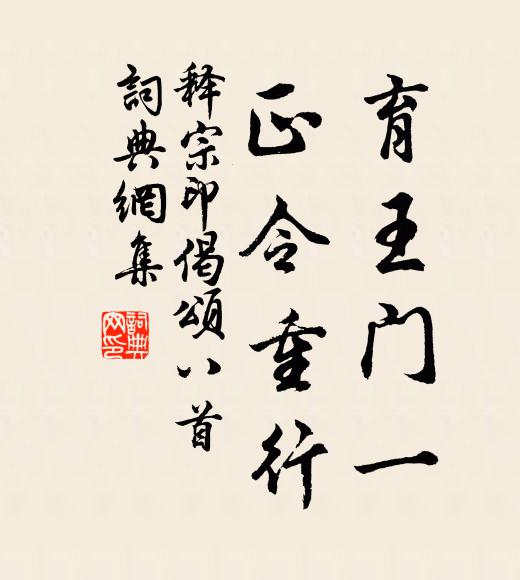 育王门一
正令重行
释宗印偈頌八首
詞典網集
詞典网印